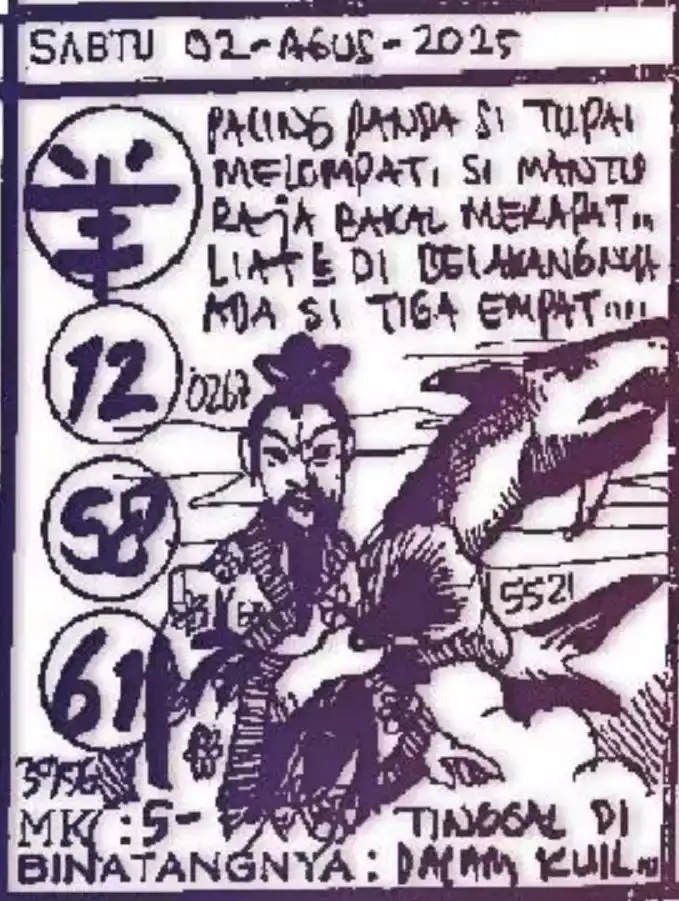 SABTU 02-AGUS-2025
羊
PACING PANDA SI TUPAI
MELOMPATI SI MANTU
RAJA BAKAL MERAPAT...
LIAT E DI BELAKANGNYA
ADA SI TIGA EMPAT....
12
0267
58
5521
61
MK : 5-
TINGGAL DI
BINATANGNYA : DALAM KUIL...